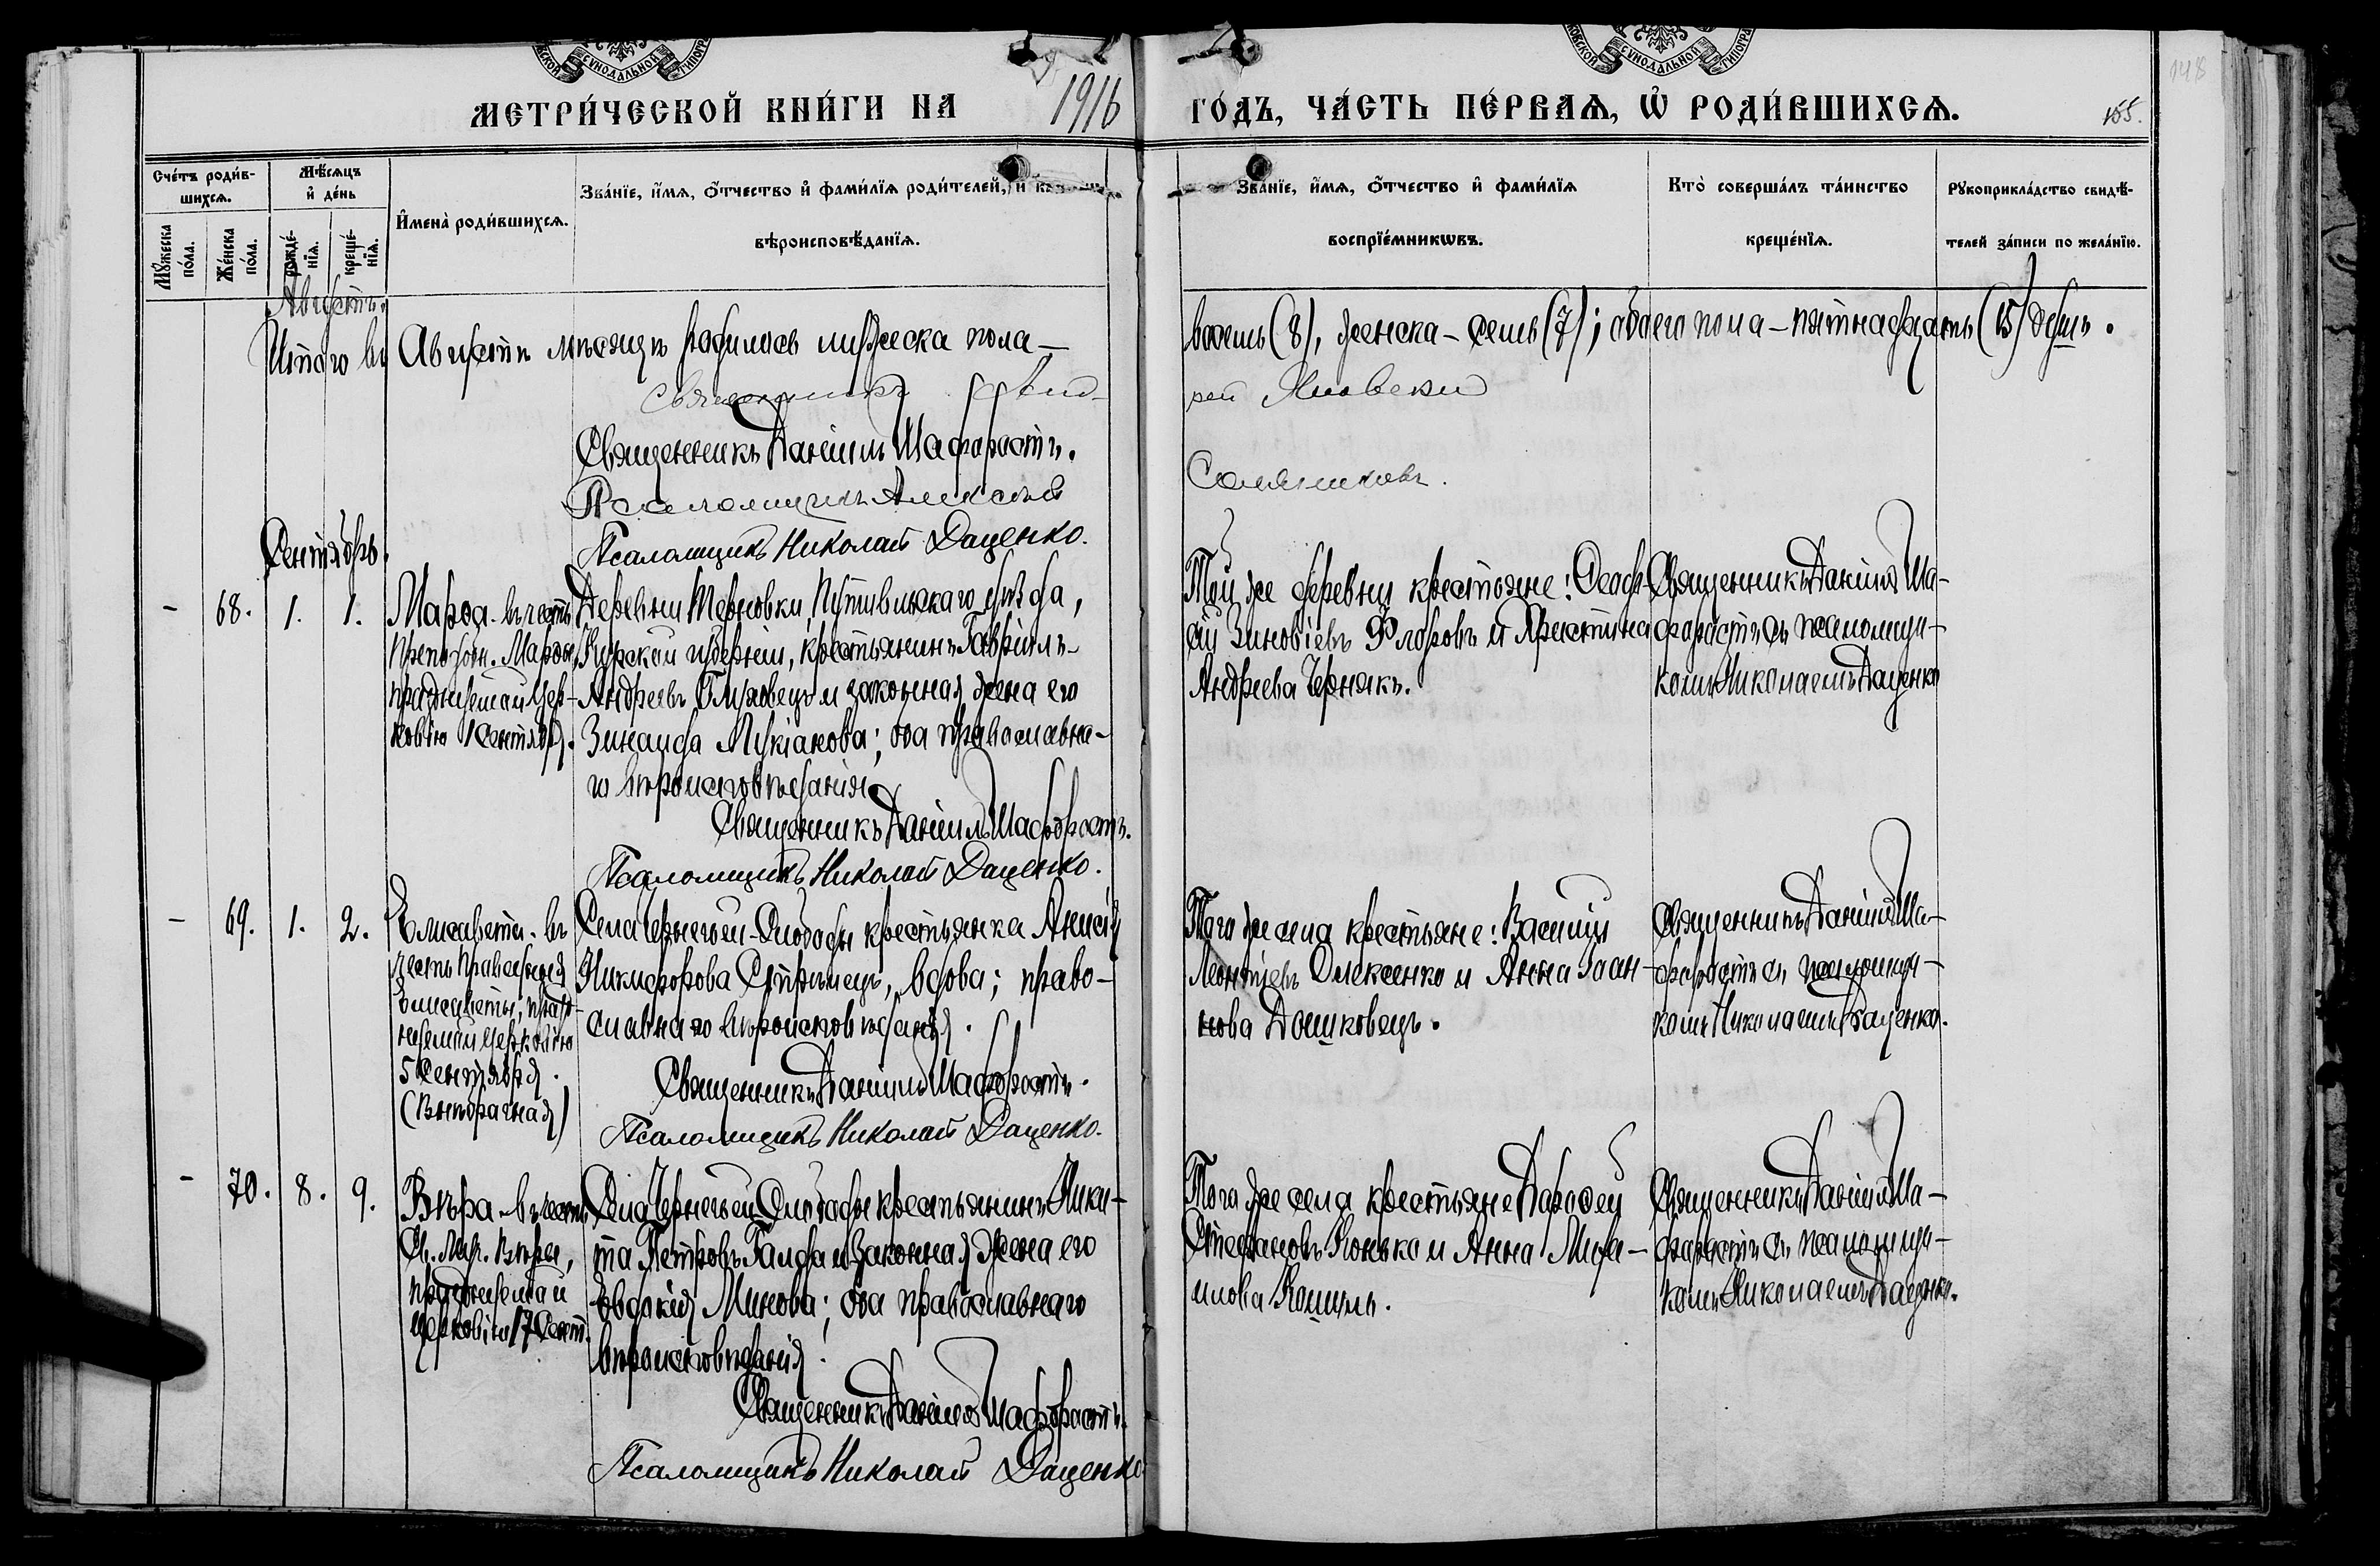 МЕТРИ́ЧЕСКОЙ КНИ́ГИ НА 1916 ГО́ДЪ, ЧА́СТЬ ПЕ́РВАЯ, Ѿ РОДИ́ВШИХСЯ.
155.
148
Сче́тъ роди́в-
шихся.
Мꙋ́жеска по́ла.
Же́нска по́ла.
Мѣ́сяцъ и҆ де́нь
рожде́-
нїя.
креще́-
нїя.
И҆мена̀ роди́вшихся.
Зва́нїе, и҆́мя, ѻ҆́тчество и҆ фами́лїя роди́телей, и҆
вѣроисповѣ́данїя.
Зва́нїе, и҆́мя, ѻ҆́тчество и҆ фами́лїя
воспрїе́мникѡвъ.
Кто̀ соверша́лъ та́инство
креще́нїя.
Рꙋкоприкла́дство свидѣ́-
телей за́писи по жела́нїю.
Августъ.
Итого въ Августѣ мѣсяцѣ родилось мужеска пола —
восемь (8), женска – семь (7); обоего пола – пятнадцать (15) душъ.
Священникъ Анд-
рей
Священникъ Даніилъ Шафоростъ.
Псаломщикъ Алексѣй
Псаломщикъ Николай Даценко.
Сентябрь.
– 68. 1. 1.
Марѳа въ честь
Преподобн. Марѳы,
празднуемой Цер-
ковію 1 Сентября.
Деревни Терновки, Путивльскаго уѣзда,
Курской губерніи, крестьянинъ Гавріилъ
Андреевъ и законная жена его
Зинаида Лукіанова; оба православна-
го вѣроисповѣданія.
Священникъ Даніилъ Шафоростъ.
Псаломщикъ Николай Даценко.
Той же деревни крестьяне:
Зиновіевъ Флоровъ и Христина
Андреева Чернякъ.
Священникъ Даніилъ Ша-
форостъ съ псаломщи-
комъ Николаемъ Даценко
– 69. 1. 2.
Елисавета въ
честь Праведной
Елисаветы, празд-
нуемой Церковію
5 Сентября.
(Внѣбрачная)
Села Чернечьей-Слободы крестьянка Анисія
Никифорова Стрѣлецъ, вдова; право-
славнаго вѣроисповѣданія.
Священникъ Даніилъ Шафоростъ.
Псаломщикъ Николай Даценко.
Того же села крестьяне: Василій
Леонтіевъ Олексенко и Анна Іоан-
нова Дошковецъ.
Священникъ Даніилъ Ша-
форостъ съ псаломщи-
комъ Николаемъ Даценко.
– 70. 8. 9.
Вѣра въ честь
Св. Муч. Вѣры,
празднуемой
Церковію 17 Сент.
Села Чернечьей Слободы крестьянинъ Ники-
та Петровъ Гайда и законная жена его
Евдокія Минова; оба православнаго
вѣроисповѣданія.
Священникъ Даніилъ Шафоростъ.
Псаломщикъ Николай Даценко
Того же села крестьяне Дороѳей
Стефановъ Конько и Анна Миха-
илова Кошиль.
Священникъ Даніилъ Ша-
форостъ съ псаломщи-
комъ Николаемъ Даценко.